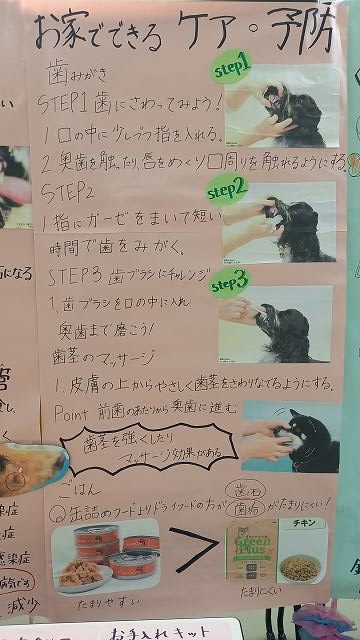 お家でできる ケア・予防
歯みがき
STEP1 歯にさわってみよう!
1 口の中に少しづつ指を入れる。
2 奥歯を触ったり、唇をめくり口周りを触れるようにする。
STEP2
1 指にガーゼをまいて短い
時間で歯をみがく。
STEP3 歯ブラシにチャレンジ
1. 歯ブラシを口の中に入れ
奥歯まで磨こう!
歯茎のマッサージ
1. 皮膚の上からやさしく歯茎をさわりなでるようにする。
Point 前歯のあたりから奥歯に進む
歯茎を強くしたり
マッサージ効果がある
step1
step2
step3
ごはん
缶詰のフードよりドライフードの方が 歯石 歯垢 がたまりにくい!
たまりやすい
>
Green Plus
チキン
たまりにくい
お手入れキット
になる
症
症
感染症
病気です
減少